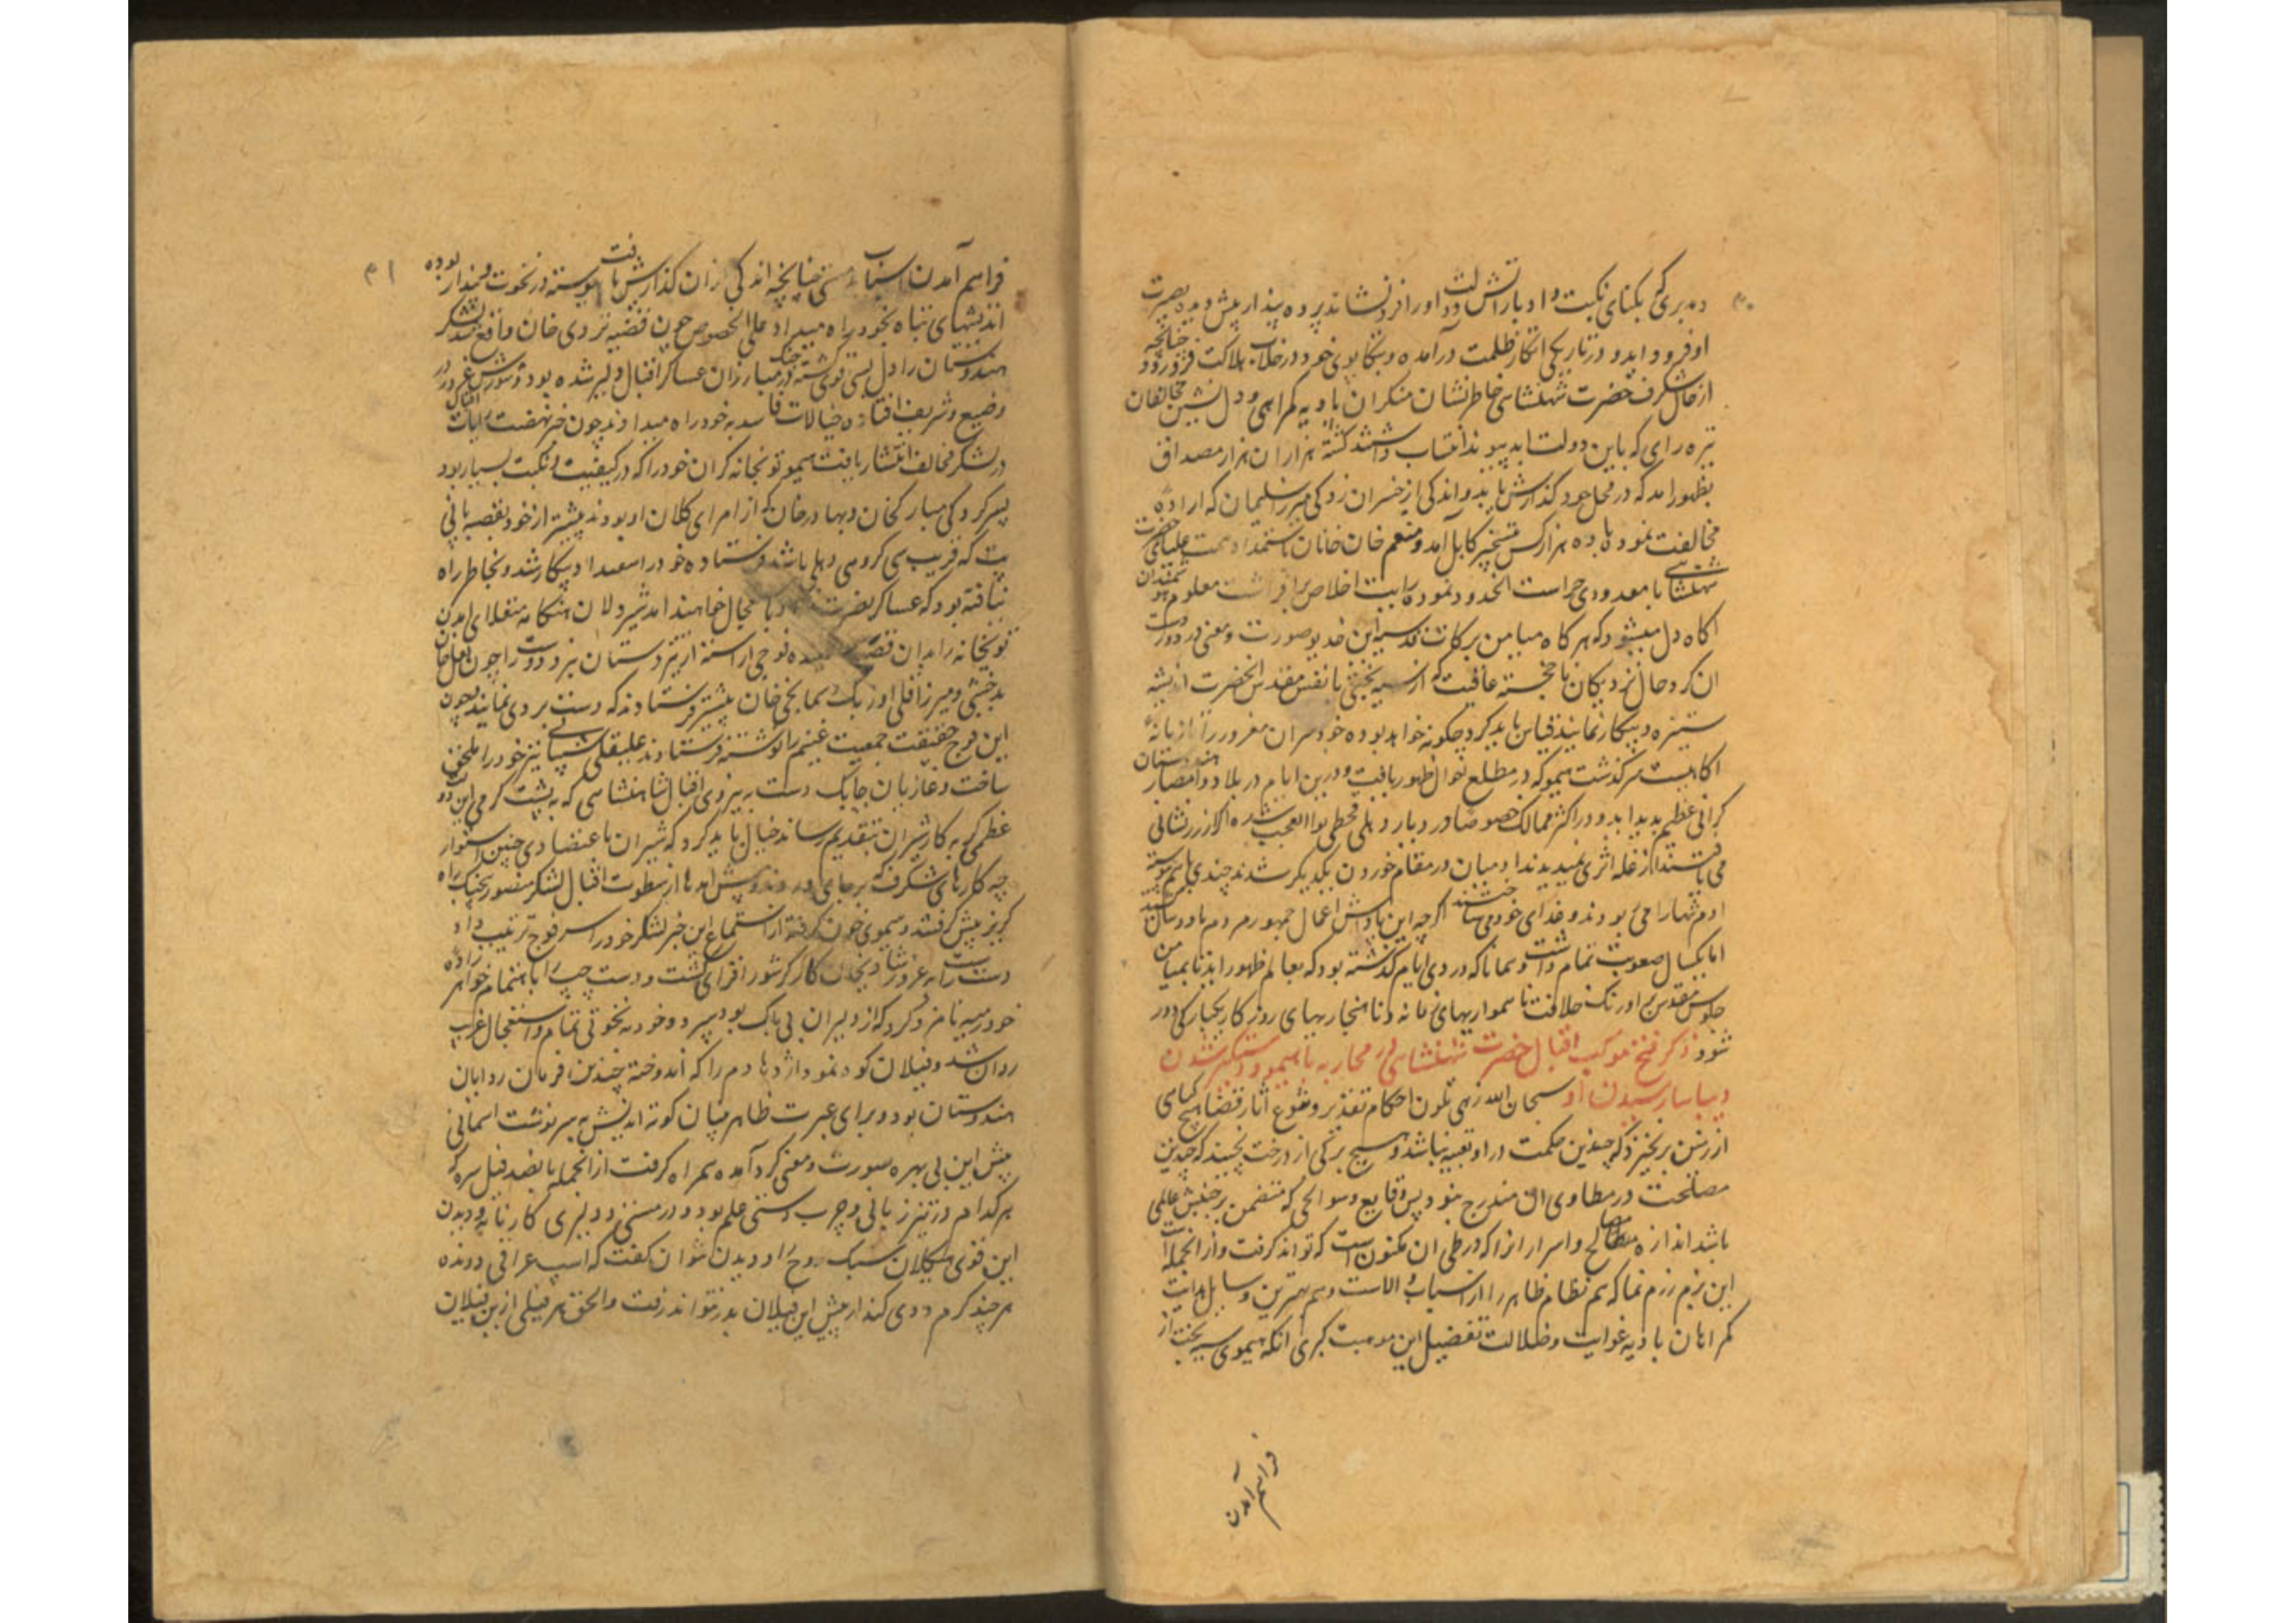 ۴۰
و مدبری که بکنای نکبت و ادبار آتش دولت او را فرونشاند پرده پندار پیش دیده بصیرت
او فرود آید و در تاریکی انکار ظلمت درآمده و بتکاپوی خود در خلاب هلاکت فرو رود چنانچه
از حال شگرف حضرت شهنشاهی خاطرنشان منکران بادیه گمراهی و دل نشین مخالفان
تیره رای که باین دولت ابدپیوند انتساب داشتند گشته هزاران هزار مصداق
بظهور آمد که در محل خود گذارش یابد و اندکی از خسران زدگی میرزا سلیمان که اراده
مخالفت نموده با ده هزار کس بتسخیر کابل آمد و منعم خان خانان باستمداد همت علیای حضرت
شهنشاهی با معدودی حراست آنحدود نموده رایت اخلاص برافراشت معلوم هوشمندان
آگاه دل میشود که هرگاه میامن برکات قدسیه این خدیو صورت و معنی در دوردست
آن کرد حال نزدیکان ناخجسته عاقبت که از سیه بختی با نفس مقدس آنحضرت اندیشه
ستیزه و پیکار نمایند قیاس باید کرد چگونه خواهد بود و خودسران مغرور را تازیانه
آگاهیست سرگذشت هیمو که در مطلع نوال ظهور یافت و درین ایام در بلاد و امصار هندوستان
گرانی عظیم پدید آمد و در اکثر ممالک خصوصا در دیار دهلی قحطی بوالعجب شد که اگر از زر نشانی
می یافتند از غله اثری نمیدیدند آدمیان در مقام خوردن یکدیگر شدند چندی باهم پیوسته
آدم تنها را می ربودند و غذای خود می ساختند اگرچه این پاداش اعمال جمهور مردم تا دو سال کشید
اما یکسال صعوبت تمام داشت و همانا که دردی ایام گذشته بود که بعالم ظهور آید تا بمیامن
جلوس مقدس بر اورنگ خلافت ناهمواریهای زمانه و ناهنجاریهای روزگار یکبارگی دور
شود ذکر فتح موکب اقبال حضرت شهنشاهی در محاربه با هیمو و دستگیر شدن
و بیاسا رسیدن او سبحان الله زهی تلون احکام تقدیر و تنوع آثار قضا هیچ گیاهی
از زمین برنخیزد که چندین حکمت در او تعبیه نباشد و هیچ برگی از درخت نجنبد که چندین
مصلحت در مطاوی آن مندرج نبود پس وقایع و سوانحی که متضمن بر جنبش عالمی
باشد اندازه مصالح و اسرار آنرا که در طی آن مکنونست که تواند گرفت و از آنجمله است
این بزم رزم نما که هم نظام ظاهر را از اسباب والاست و هم بهترین وسایل هدایت
گمراهان بادیه غوایت و ضلالت تفصیل این موهبت کبری آنکه هیموی سیه بخت از
فراهم آمدن
۴۱
فراهم آمدن اسباب مستی چنانچه اندکی از آن گذارش یافت پیوسته در نخوت و پندار بوده
اندیشهای تباه بخود راه میداد علی الخصوص چون قضیه تردی خان واقع شد لشکر
هندوستان را دل بستگی قوی گشته در جنگ مبارزان عساکر اقبال دلیر شده بود و شورش غرور در
وضیع و شریف افتاده خیالات فاسد به خود راه میدادند چون خبر نهضت رایات اقبال
در لشکر مخالف انتشار یافت هیمو توپخانه گران خود را که در کیفیت و نکبت بسیار بود
بسرکردگی مبارکخان و بهادرخان که از امرای کلان او بودند پیشتر از خود بقصبه پانی
پت که قریب سی کروهی دهلی باشد فرستاده خود را مستعد پیکار شد و بخاطر راه
نیافته بود که عساکر نصرت باین مجال خواهند آمد شیردلان هنگامه منقلای آمدن
توپخانه را بدان قصبه شنیده فوجی آراسته از تیزدستان نبرد دوست را چون لعل خان
بدخشی و میرزا قلی اوزبک و سمانجی خان پیشتر فرستادند که دست بردی نمایند چون
این فوج حقیقت جمعیت غنیم را نوشته فرستادند علیقلی شیبانی نیز خود را ملحق
ساخت و غازیان چابک دست به نیروی اقبال شاهنشاهی که به پشت گرمی این دولت
عظمی گوی به کار شیران بتقدیم رساند خیال باید کرد که شیران باعتضادی چنین استوار
چه کارهای شگرف که برجای آورند و پیش آمدها از سطوت اقبال لشکر منصور بجنگ راه
گریز پیش گرفتند و هیموی خون گرفته از استماع این خبر لشکر خود را سه فوج ترتیب داد
دست راست را به غرور شادیخان کاکر شورافزای گشت و دست چپ را باهتمام خواهرزاده
خود رمیه نامزد کرد که از دلیران بی باک بود سپرد و خود به نخوتی تمام و استعجال غریب
روان شد و فیلان کوه نمود اژدها دم را که اندوخته چندین فرمان روایان
هندوستان بود و برای عبرت ظاهربینان کوته اندیش به سرنوشت آسمانی
پیش این بی بهره صورت و معنی گرد آمده همراه گرفت از آنجمله پانصد فیل سره که
هرکدام در تیززبانی و چرب دستی علم بود و در مستی و دلیری کارنامه و دیدن
این قوی هیکلان سبک روح را دویدن نتوان گفت که اسپ عراقی دونده
هرچند گرم دوی کند از پیش این فیلان بدر نتواند رفت والحق هر فیلی از این فیلان